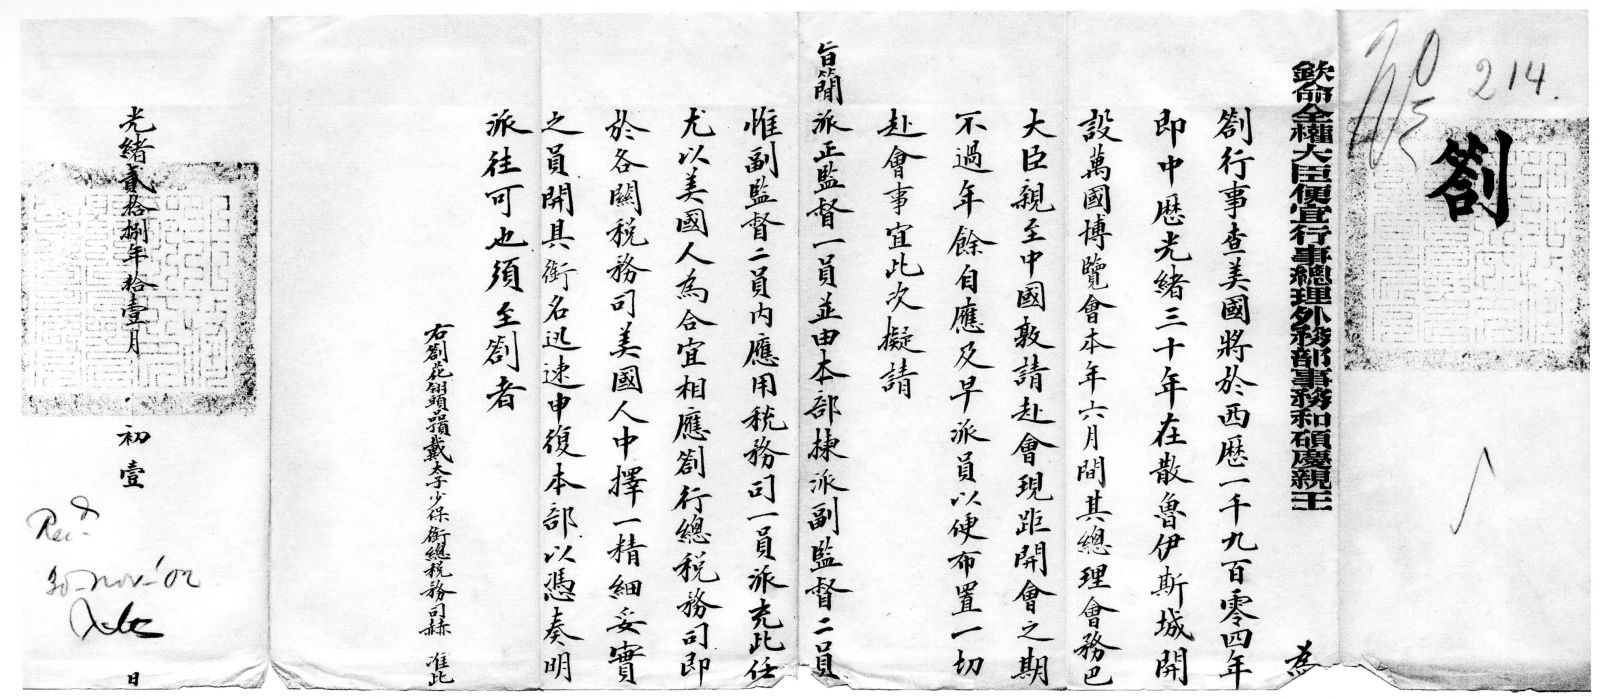 214.
劄
欽命全權大臣便宜行事總理外務部事務和碩慶親王 為
劄行事查美國將於西曆一千九百零四年
即中曆光緒三十年在散魯伊斯城開
設萬國博覽會本年六月間其總理會務巴
大臣親至中國敦請赴會現距開會之期
不過年餘自應及早派員以便布置一切
赴會事宜此次擬請
旨簡派正監督一員並由本部揀派副監督二員
惟副監督二員內應用稅務司一員派充此任
尤以美國人為合宜相應劄行總稅務司即
於各關稅務司美國人中擇一精細妥實
之員開具銜名迅速申復本部以憑奏明
派往可也須至劄者
右劄花翎頭品頂戴太子少保銜總稅務司赫 准此
光緒貳拾捌年拾壹月 初壹 日
Rec'd
30 Nov. '02